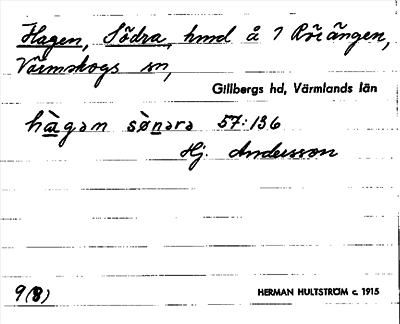 Hagen, Södra, hmd å 7 Röiängen,
Värmskogs sn,
Gillbergs hd, Värmlands län
hàgən sø̀nərə 57:136
Hj. Andersson
9(8)
HERMAN HULTSTRÖM c. 1915